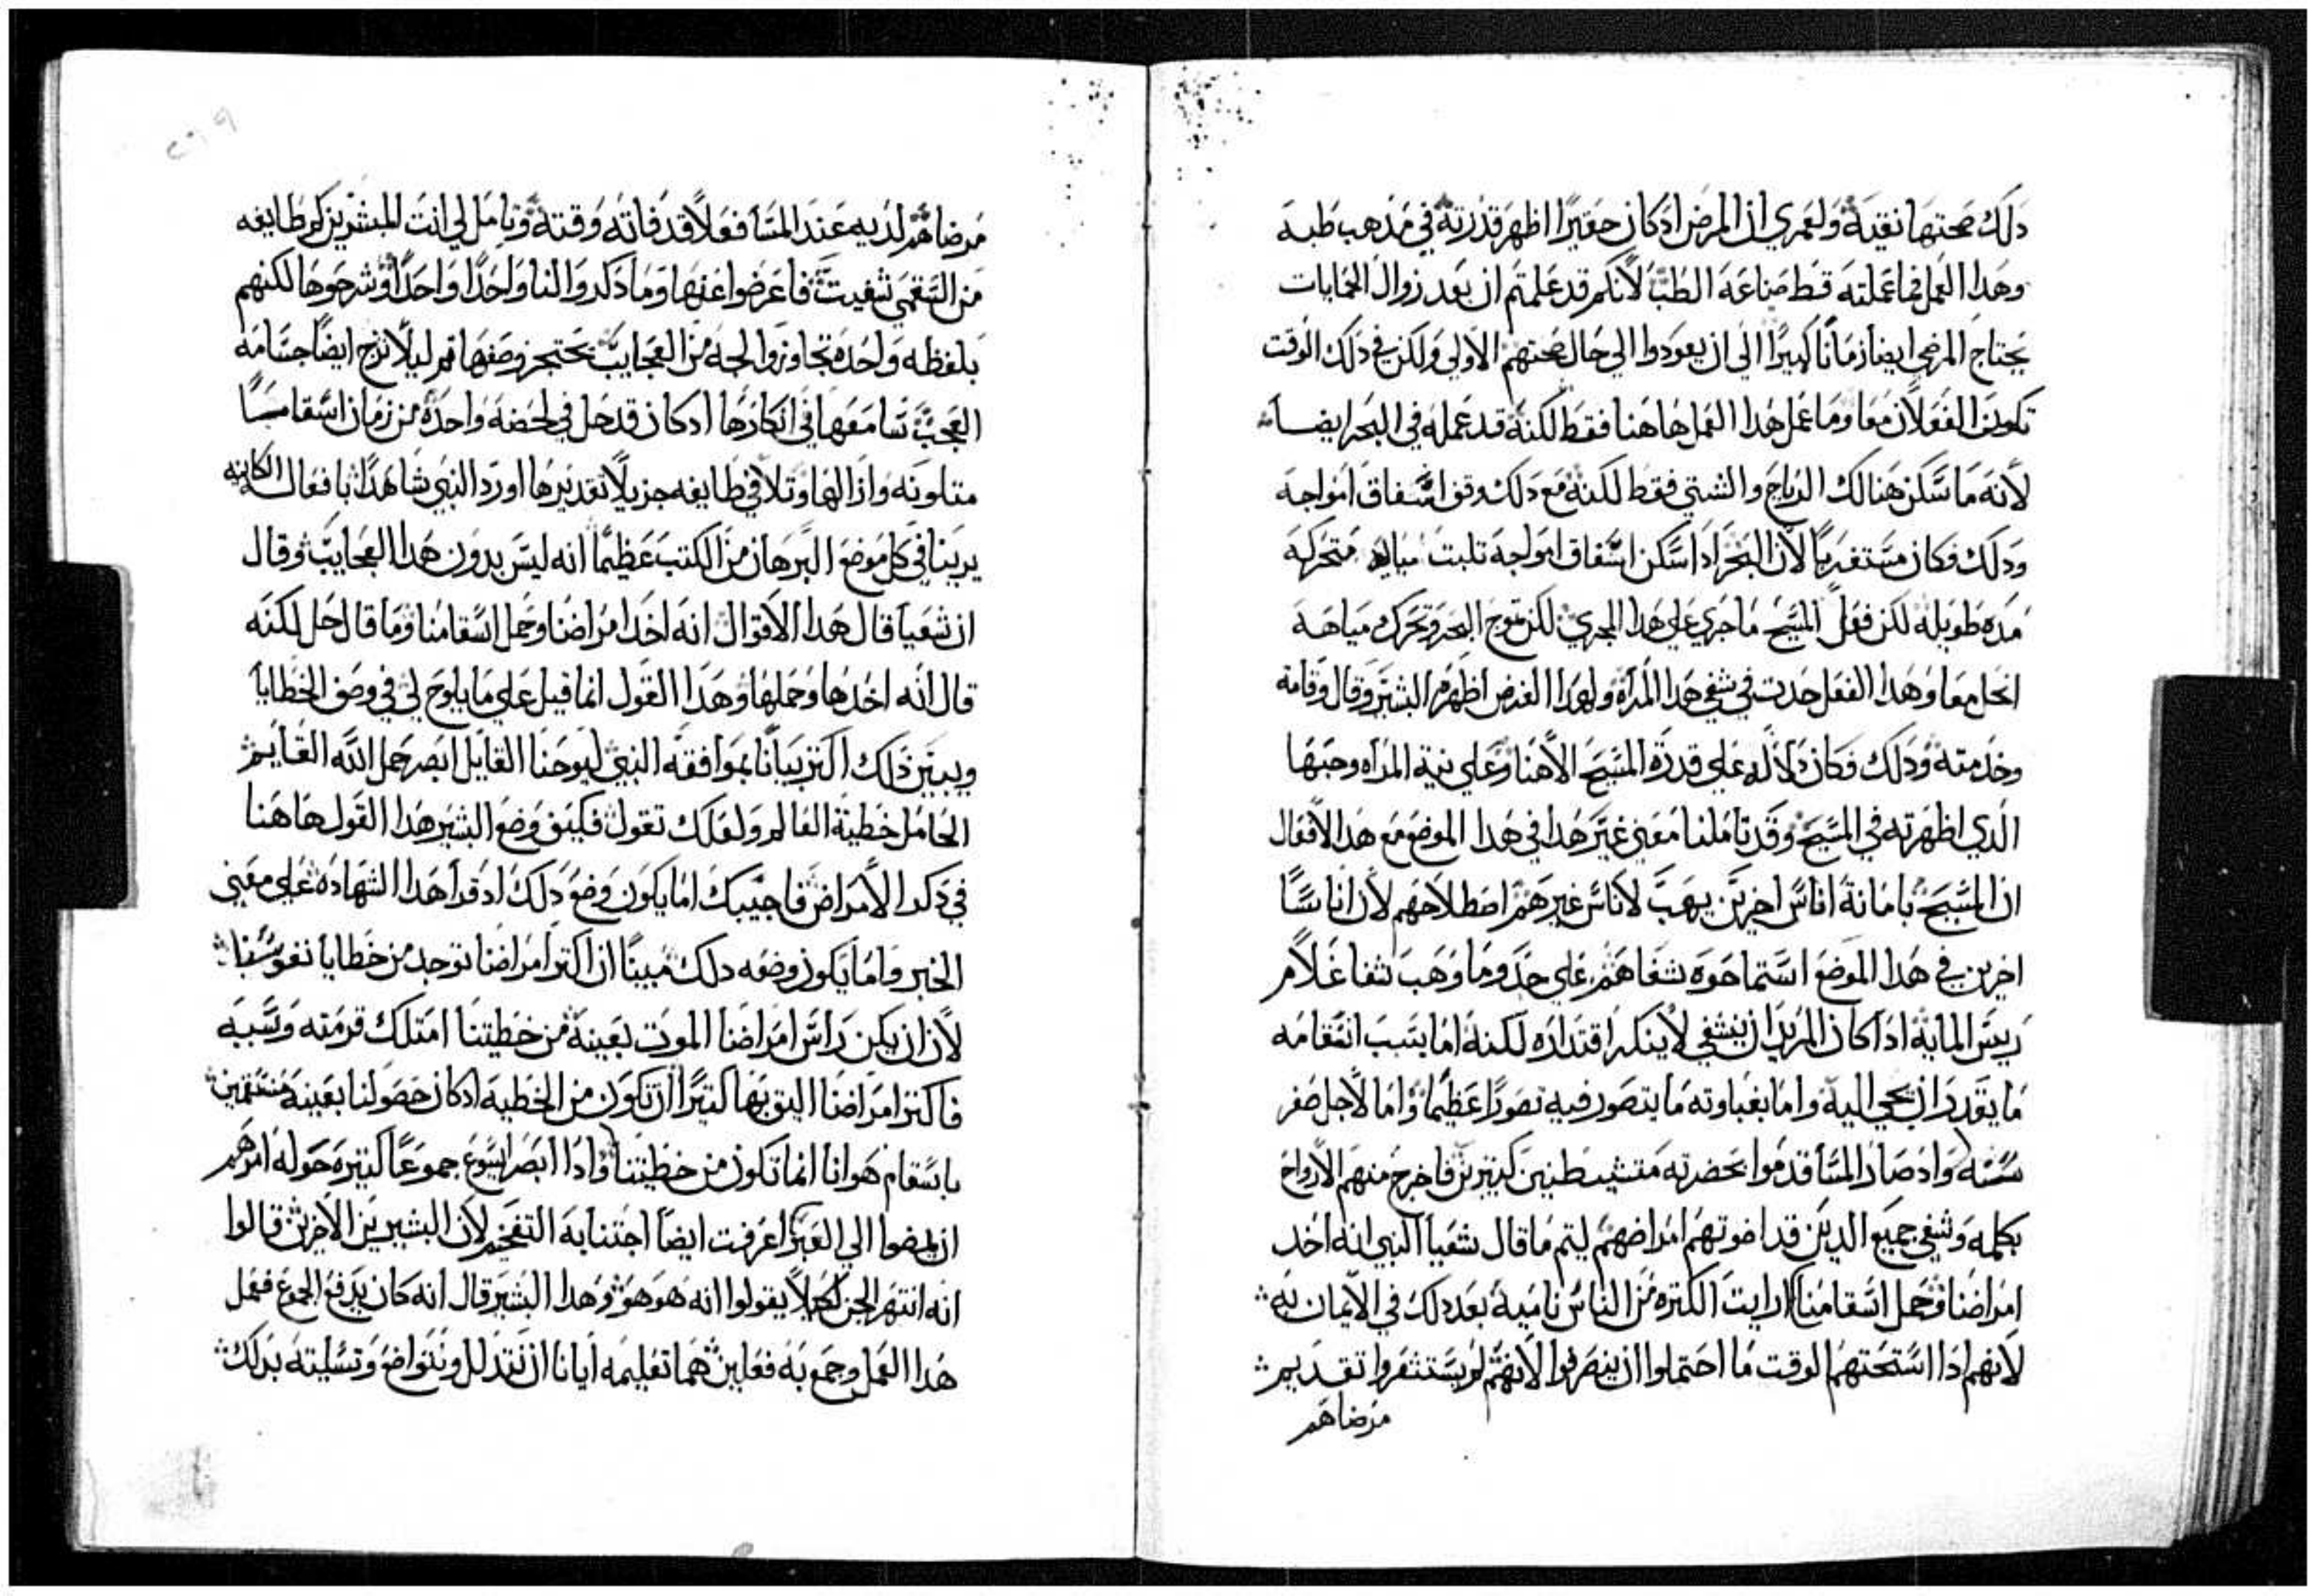 دلك صحتها نقية ولعمري ان المرض اد كان حقيرا اظهر قدرته في مدهب طبه
وهدا العمل فما عملته قط صناعة الطب لانكم قد علمتم ان بعد زوال الحمايات
يحتاج المرضي ايضا زمانا كبيرا الي ان يعودوا الي حال صحتهم الاولي ولكن في دلك الوقت
تكون الفعلان معا وما عمل هدا العمل هاهنا فقط لكنه قد عمله في البحر ايضا
لانه ما سكن هنالك الرياح والشتي فقط لكنه مع دلك وقف اتسفاق امواجه
ودلك فكان مستغربا لان البحر ادا سكن اتسفاق امواجه تلبت مياه متحركه
مده طويله لكن فعل المسيح ما جري علي هدا المجري لكن تموج البحر وتحرك مياهه
انحل معا وهدا الفعل حدت في شفي هدا المراة ولهدا الغرض اظهره البشير وقال وقامة
وخدمته ودلك فكان دلاله علي قدرة المسيح الاهنا وعلي نية المراه وحبها
الدي اظهرته في المسيح وقد تاملنا معني غير هدا في هدا الموضع مع هدا الافعال
ان المسيح بامانة اناس اخرين يهب لاناس غيرهم اصطلاحهم لان اناسا
اخرين في هدا الموضع استماحوه شفاهم علي حد وما وهب شفا غلام
ريس الماية ادا كان المريد ان يشفي لا ينكر اقتداره لكنه اما بسبب اسقامه
ما يقدر ان يجي اليه واما بغباوته ما يتصور فيه تصورا عظيما واما لاجل صغر
سنه واد صار المسا قدموا بحضرته متشيطنين كتيرين فاخرج منهم الارواح
بكلمه وشفي جميع الدين قد اضوتهم امراضهم ليتم ما قال شعيا النبي انه اخد
امراضنا وحمل اسقامنا ارايت الكتره من الناس نامية بعد دلك في الايمان به
لانهم ادا استحتهم الوقت ما احتملوا ان ينصرفوا لانهم لم يستشعروا تقديم
مرضاهم
مرضاهم لديه عند المسا فعلا قد فاته وقته وتامل لي انت المبشرين كم طايفه
من السقمي شفيت فاعرضوا عنها وما دكروا لنا واحدا واحدا وشرحوها لكنهم
بلفظه واحده تجاوزوا لجة من العجايب تحتجز وصفها تم ليلا نزج ايضا جسامه
العجب تسامعها في انكارها اد كان قد حل في لحضه واحده من زمان اسقامسا
متلونه وازالها وتلافي طايفه جزيلا تقديرها اورد النبي شاهدا بافعال الكاينه
يرينا في كل موضع البرهان من الكتب عظيما انه ليس بدون هدا العجايب وقال
ان شعيا قال هدا الاقوال انه اخد امراضنا وحمل اسقامنا وما قال حل لكنه
قال انه اخدها وحملها وهدا القول انما قيل علي ما يلوح لي في وصف الخطايا
ويبين دلك اكتر بيانا بموافقه النبي ليوحنا القايل ابصر حمل الله القايم
الحامل خطية العالم ولعلك تقول فكيف وضع البشير هدا القول هاهنا
في دكر الامراض فاجيبك اما يكون وضع دلك اد قرا هدا الشهاده علي معني
الخبر واما يكون وضعه دلك مبينا ان اكتر امراضنا توجد من خطايا نفوسنا
لان ان يكن راس امراضنا الموت بعينه من خطيتنا امتلك قرمته وسببه
فاكتر امراضنا اليق بها كتيرا ان تكون من الخطيه اد كان حصولنا بعينه منسقمين
باسقام هوانا انما تكون من خطيتنا وادا ابصر ايسوع جموعا كتيره حوله امرهم
ان يمضوا الي العبر اعرفت ايضا اجتنابه التفخيم لان البشيرين الاخرين قالوا
انه انتهر الجن لكيلا يقولوا انه هو هو وهدا البشير قال انه كان يدفع الجموع ففعل
هدا العمل وجمع به فعلين هما تعليمه ايانا ان نتدلل ونتواضع وتسليته بدلك